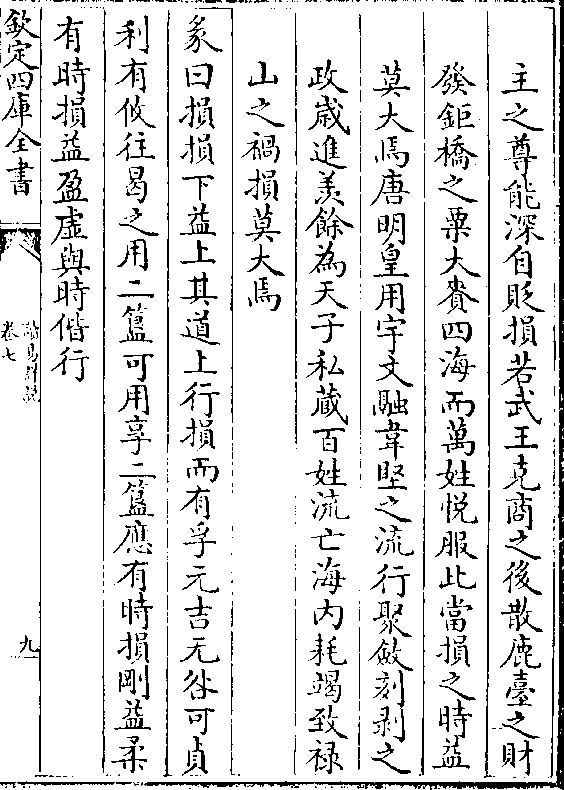 主之尊能深自貶損若武王克商之後散鹿臺之財
發鉅橋之粟大賚四海而萬姓悦服此當損之時益
莫大焉唐明皇用宇文融韋堅之流行聚斂刻剥之
政歳進羡餘為天子私藏百姓流亡海内耗竭致禄
山之禍損莫大焉
彖曰損損下益上其道上行損而有孚元吉无咎可貞
利有攸往曷之用二簋可用享二簋應有時損剛益柔
有時損益盈虛與時偕行
欽定四庫全書
讀易詳説
卷七
九